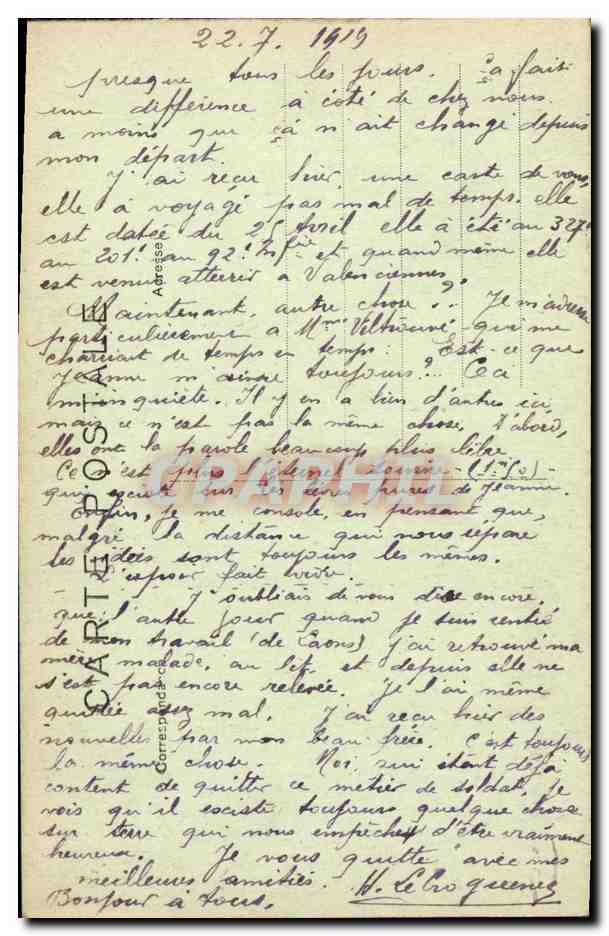 22.7. 1919
presque tous les jours. Ça fait
une différence à côté de chez nous.
a moins que ça n'ait changé depuis
mon départ.
J'ai reçu hier, une carte de vous,
elle à voyagé pas mal de temps. elle
est datée du 25 Avril elle à été au 327e
au 201e au 92e Infie et quand même elle
est venue atterrir a Valenciennes.
Maintenant, autre chose ?? Je m'adresse
particulièrement a Mme qui me
de temps en temps: Est-ce que
Jeanne m'aime toujours?.. Ceci
m'inquiete. Il y en a bien d'autres ici,
mais ce n'est pas la même chose. D'abord,
elles ont la parole beaucoup plus libre.
Ce n'est plus l'éternel
qui sur les lèvres pures de Jeanne.
Enfin, je me console, en pensant que,
malgré la distance qui nous sépare
les idées sont toujours les mêmes.
L'espoir fait vivre.
J'oubliais de vous dire encore,
que l'autre jour quand je suis rentré
de mon travail (de Laons) j'ai retrouvé ma
mère malade, au lit et depuis elle ne
s'est pas encore relevée. Je l'ai même
quittée assez mal. J'ai reçu hier des
nouvelles par mon beau-frère. C'est toujours
la même chose. Moi, qui étant déjà
content de quitter ce métier de soldat, je
vois qu'il existe toujours quelque chose
sur terre qui nous empêche d'être vraiment
heureux. Je vous quitte avec mes
meilleures amitiés. H. Le Croguennec
Bonjour à tous.
CARTE POSTALE
Correspondance
Adresse
CPAPHIL